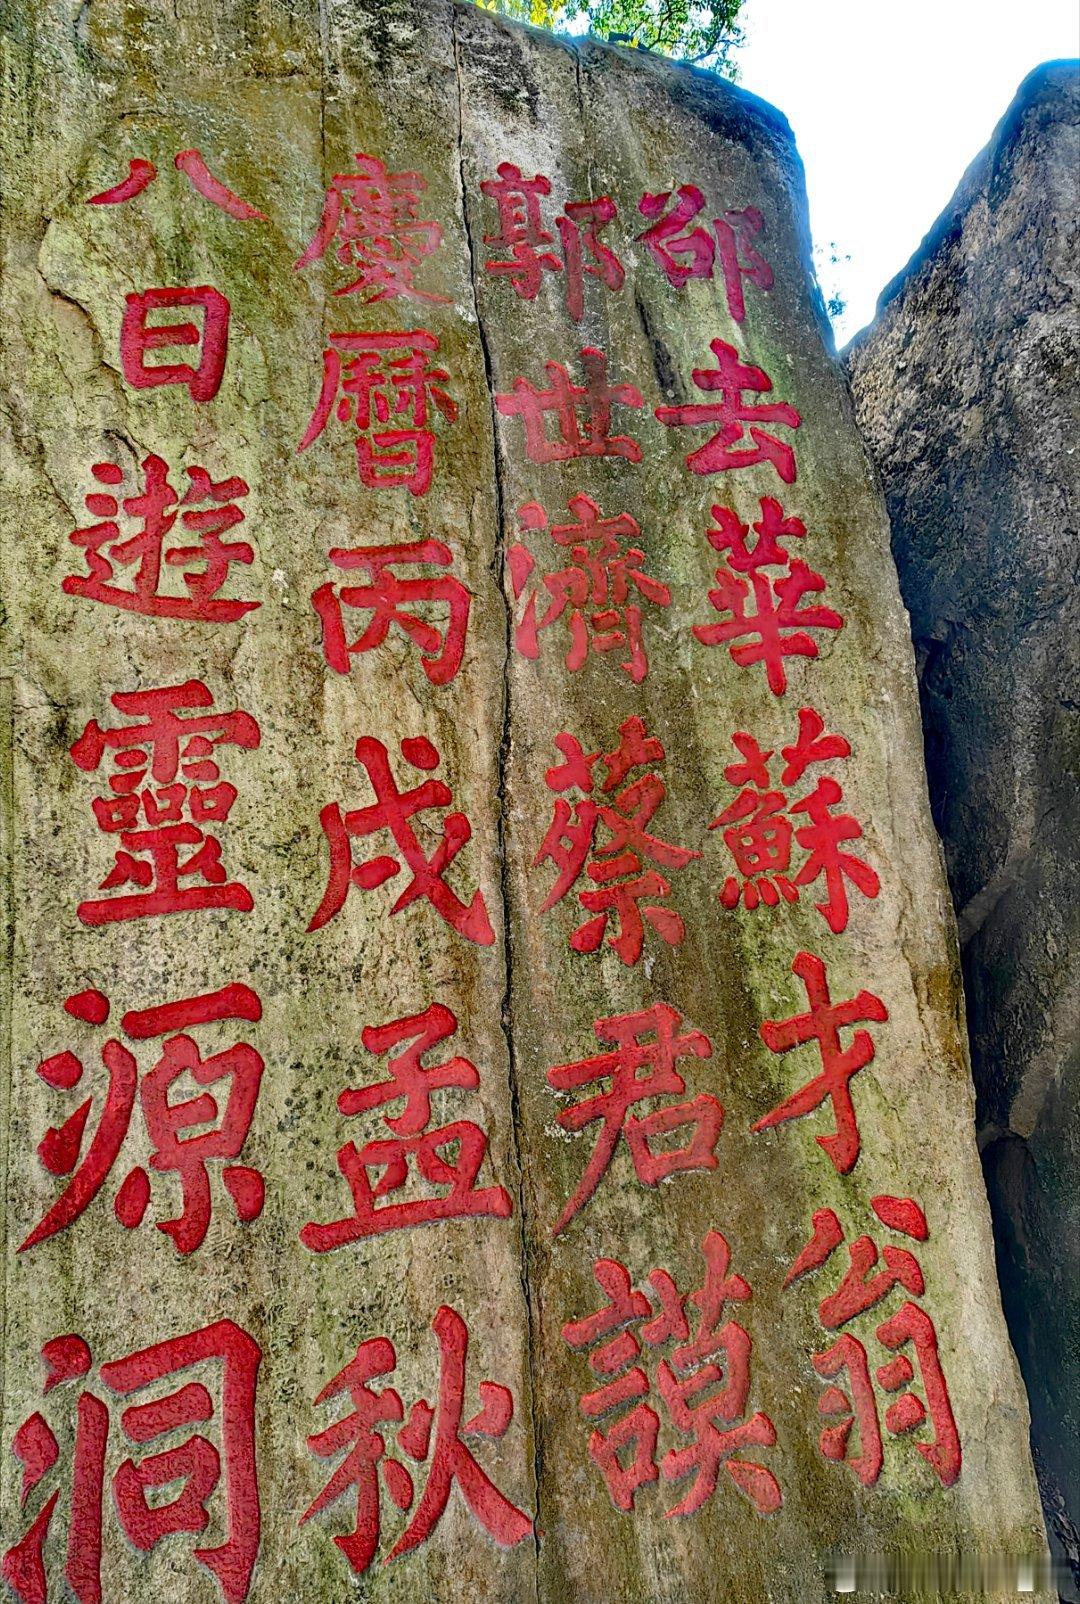 邵去華蘇才翁
郭世濟蔡君謨
慶曆丙戌孟秋
八日遊靈源洞